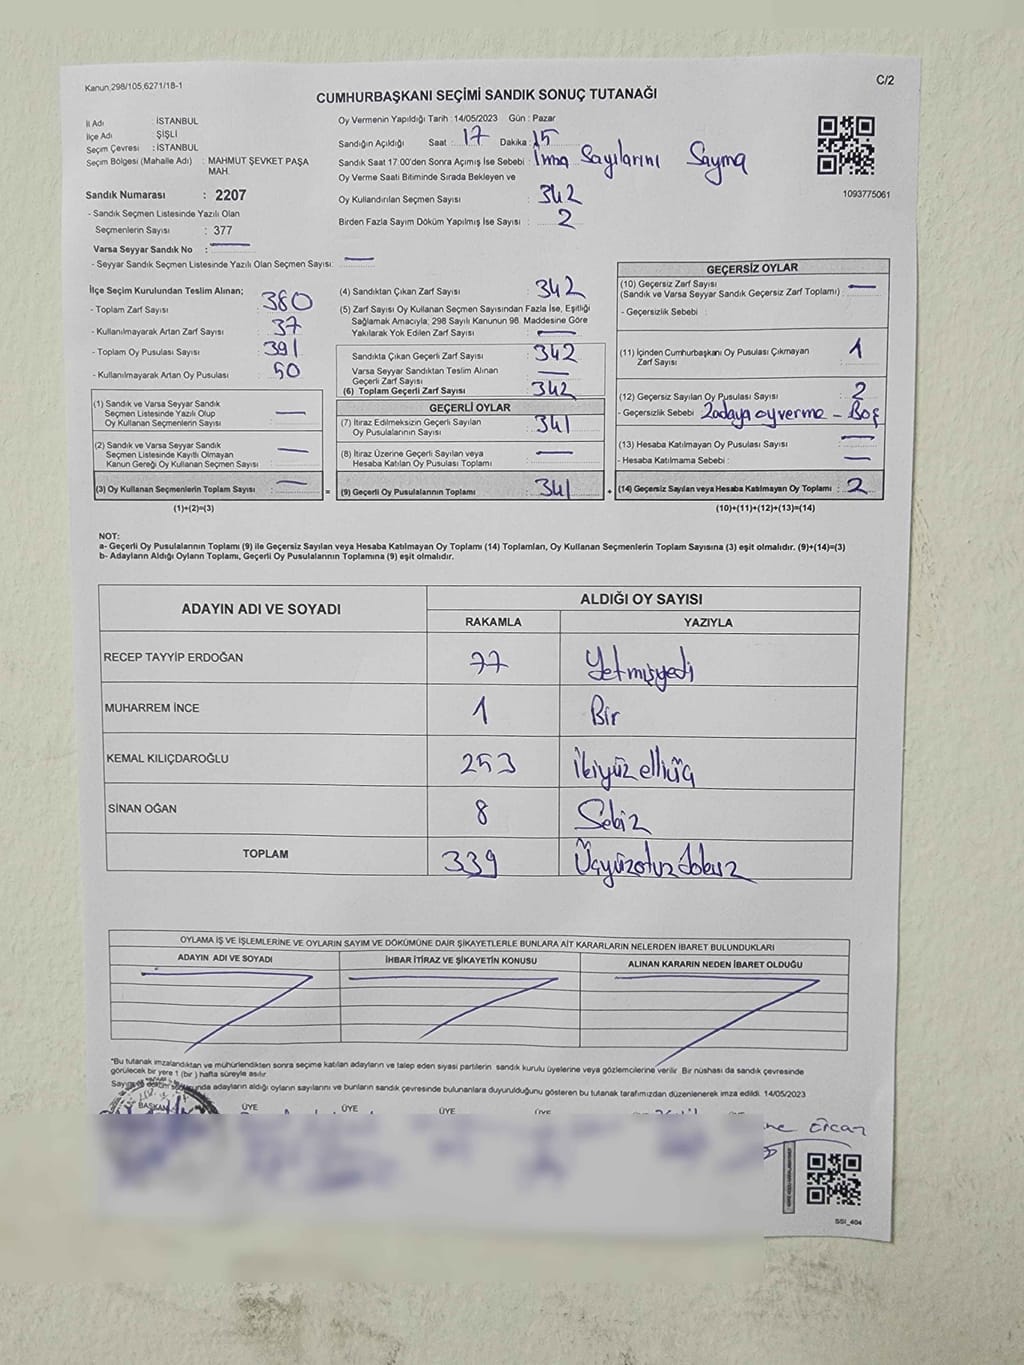 Kanun,298/105,6271/18-1
C/2
CUMHURBAŞKANI SEÇİMİ SANDIK SONUÇ TUTANAĞI
İl Adı : İSTANBUL
İlçe Adı : ŞİŞLİ
Seçim Çevresi : İSTANBUL
Seçim Bölgesi (Mahalle Adı) : MAHMUT ŞEVKET PAŞA MAH.
Sandık Numarası : 2207
- Sandık Seçmen Listesinde Yazılı Olan
Seçmenlerin Sayısı : 377
Varsa Seyyar Sandık No :
- Seyyar Sandık Seçmen Listesinde Yazılı Olan Seçmen Sayısı:
Oy Vermenin Yapıldığı Tarih : 14/05/2023 Gün : Pazar
Sandığın Açıldığı Saat : 17 Dakika : 15
Sandık Saat 17:00'den Sonra Açımış İse Sebebi : İmza Sayılarını Sayma
Oy Verme Saati Bitiminde Sırada Bekleyen ve
Oy Kullandırılan Seçmen Sayısı : 342
Birden Fazla Sayım Döküm Yapılmış İse Sayısı : 2
1093775061
İlçe Seçim Kurulundan Teslim Alınan;
- Toplam Zarf Sayısı : 380
- Kullanılmayarak Artan Zarf Sayısı : 37
- Toplam Oy Pusulası Sayısı : 391
- Kullanılmayarak Artan Oy Pusulası : 50
(1) Sandık ve Varsa Seyyar Sandık
Seçmen Listesinde Yazılı Olup
Oy Kullanan Seçmenlerin Sayısı
(2) Sandık ve Varsa Seyyar Sandık
Seçmen Listesinde Kayıtlı Olmayan
Kanun Gereği Oy Kullanan Seçmen Sayısı
(3) Oy Kullanan Seçmenlerin Toplam Sayısı :
(1)+(2)=(3)
(4) Sandıktan Çıkan Zarf Sayısı : 342
(5) Zarf Sayısı Oy Kullanan Seçmen Sayısından Fazla İse, Eşitliği
Sağlamak Amacıyla; 298 Sayılı Kanunun 98. Maddesine Göre
Yakılarak Yok Edilen Zarf Sayısı :
Sandıkta Çıkan Geçerli Zarf Sayısı : 342
Varsa Seyyar Sandıktan Teslim Alınan
Geçerli Zarf Sayısı :
(6) Toplam Geçerli Zarf Sayısı : 342
GEÇERLİ OYLAR
(7) İtiraz Edilmeksizin Geçerli Sayılan
Oy Pusulalarının Sayısı : 341
(8) İtiraz Üzerine Geçerli Sayılan veya
Hesaba Katılan Oy Pusulası Toplamı :
= (9) Geçerli Oy Pusulalarının Toplamı : 341 +
GEÇERSİZ OYLAR
(10) Geçersiz Zarf Sayısı
(Sandık ve Varsa Seyyar Sandık Geçersiz Zarf Toplamı) :
- Geçersizlik Sebebi :
(11) İçinden Cumhurbaşkanı Oy Pusulası Çıkmayan
Zarf Sayısı : 1
(12) Geçersiz Sayılan Oy Pusulası Sayısı : 2
- Geçersizlik Sebebi : 2 adaya oy verme - Boş
(13) Hesaba Katılmayan Oy Pusulası Sayısı :
- Hesaba Katılmama Sebebi :
(14) Geçersiz Sayılan veya Hesaba Katılmayan Oy Toplamı : 2
(10)+(11)+(12)+(13)=(14)
NOT:
a- Geçerli Oy Pusulalarının Toplamı (9) ile Geçersiz Sayılan veya Hesaba Katılmayan Oy Toplamı (14) Toplamları, Oy Kullanan Seçmenlerin Toplam Sayısına (3) eşit olmalıdır. (9)+(14)=(3)
b- Adayların Aldığı Oyların Toplamı, Geçerli Oy Pusulalarının Toplamına (9) eşit olmalıdır.
ADAYIN ADI VE SOYADI
ALDIĞI OY SAYISI
RAKAMLA YAZIYLA
RECEP TAYYİP ERDOĞAN 77 Yetmişyedi
MUHARREM İNCE 1 Bir
KEMAL KILIÇDAROĞLU 253 İkiyüz elliüç
SİNAN OĞAN 8 Sekiz
TOPLAM 339 Üçyüzotuzdokuz
OYLAMA İŞ VE İŞLEMLERİNE VE OYLARIN SAYIM VE DÖKÜMÜNE DAİR ŞİKAYETLERLE BUNLARA AİT KARARLARIN NELERDEN İBARET BULUNDUKLARI
ADAYIN ADI VE SOYADI İHBAR İTİRAZ VE ŞİKAYETİN KONUSU ALINAN KARARIN NEDEN İBARET OLDUĞU
"Bu tutanak imzalandıktan ve mühürlendikten sonra seçime katılan adayların ve talep eden siyasi partilerin sandık kurulu üyelerine veya gözlemcilerine verilir. Bir nüshası da sandık çevresinde
görülecek bir yere 1 (bir) hafta süreyle asılır.
Sayım ve döküm sonucunda adayların aldığı oyların sayılarını ve bunların sandık çevresinde bulunanlara duyurulduğunu gösteren bu tutanak tarafımızdan düzenlenerek imza edildi. 14/05/2023
BAŞKAN ÜYE ÜYE ÜYE ÜYE
Ercan
SSI_404